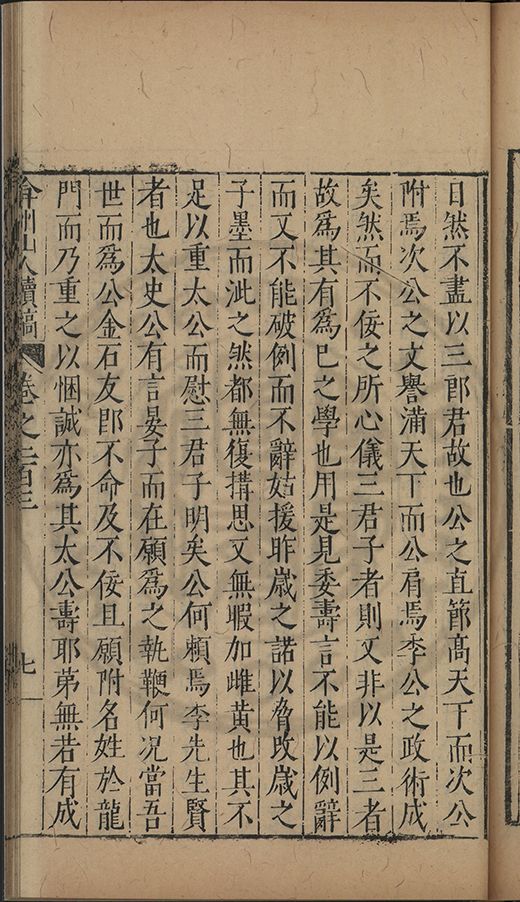 日然不盡以三郎君故也公之直節高天下而次公
附焉次公之文譽滿天下而公肩焉李公之政術成
矣然而不佞之所心儀三君子者則又非以是三者
故爲其有爲已之學也用是見委壽言不能以例辭
而又不能破例而不辭姑援昨歲之諾以脅改歲之
子墨而泚之然都無復搆思又無暇加雌黃也其不
足以重太公而慰三君子明矣公何賴焉李先生賢
者也太史公有言晏子而在願爲之執鞭何况當吾
世而爲公金石友卽不命及不佞且願附名姓於龍
門而乃重之以悃誠亦爲其太公壽耶第無若有成
弇州山人續稿 卷之三百三 七